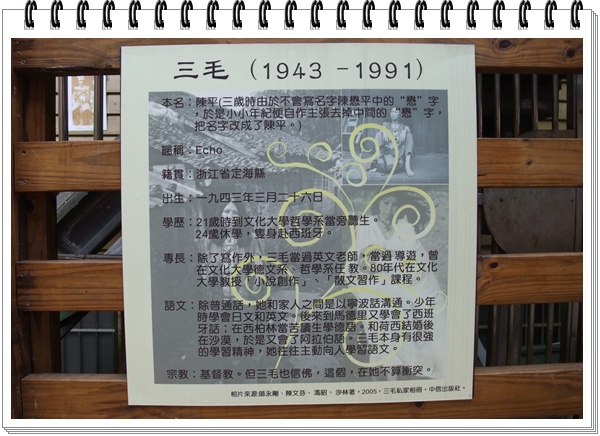 三毛 (1943 －1991)
本名：陳平(三歲時由於不會寫名字陳懋平中的“懋”字
，於是小小年紀便自作主張去掉中間的“懋”字，
把名字改成了陳平。)
暱稱：Echo
籍貫：浙江省定海縣
出生：一九四三年三月二十六日
學歷：21歲時到文化大學哲學系當旁聽生。
24歲休學，隻身赴西班牙。
專長：除了寫作外，三毛當過英文老師，當過導遊，曾
在文化大學德文系、哲學系任教。80年代在文化
大學教授「小說創作」、「散文習作」課程。
語文：除普通話，她和家人之間是以寧波話溝通。少年
時學會日文和英文。後來到馬德里又學會了西班
牙話；在西柏林當苦讀生學德語。和荷西結婚後
在沙漠，於是又會了阿拉伯語。三毛本身有很強
的學習精神，她往往主動向人學習語文。
宗教：基督教。但三毛也信佛，這個，在她不算衝突。
相片來源:師永剛、陳文芬、馮昭、沙林著，2005，三毛私家相冊，中信出版社。